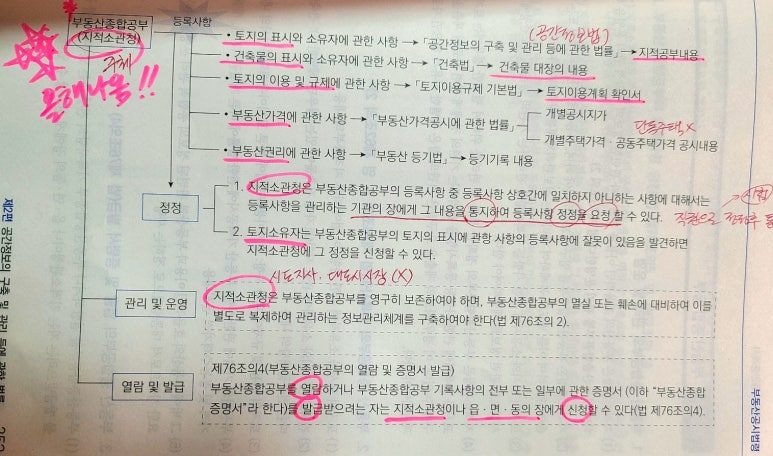 부동산종합공부
(지적소관청)
주체
올해나옴!!
등록사항
(공간정보법)
• 토지의 표시와 소유자에 관한 사항 → 「공간정보의 구축 및 관리 등에 관한 법률」 → 지적공부내용
• 건축물의 표시와 소유자에 관한 사항 → 「건축법」 → 건축물 대장의 내용
• 토지의 이용 및 규제에 관한 사항 → 「토지이용규제 기본법」 → 토지이용계획 확인서
• 부동산가격에 관한 사항 → 「부동산가격공시에 관한 법률」
개별공시지가
단독주택 X
개별주택가격 · 공동주택가격 공시내용
• 부동산권리에 관한 사항 → 「부동산 등기법」 → 등기기록 내용
정정
1. 지적소관청은 부동산종합공부의 등록사항 중 등록사항 상호간에 일치하지 아니하는 사항에 대해서는
등록사항을 관리하는 기관의 장에게 그 내용을 통지하여 등록사항 정정을 요청할 수 있다.
직권으로 정정후 통
2. 토지소유자는 부동산종합공부의 토지의 표시에 관항 사항의 등록사항에 잘못이 있음을 발견하면
지적소관청에 그 정정을 신청할 수 있다.
시도지사. 대도시시장 (X)
관리 및 운영
지적소관청은 부동산종합공부를 영구히 보존하여야 하며, 부동산종합공부의 멸실 또는 훼손에 대비하여 이를
별도로 복제하여 관리하는 정보관리체계를 구축하여야 한다(법 제76조의 2).
열람 및 발급
제76조의4(부동산종합공부의 열람 및 증명서 발급)
부동산종합공부를 열람하거나 부동산종합공부 기록사항의 전부 또는 일부에 관한 증명서 (이하 "부동산종합
증명서"라 한다)를 발급받으려는 자는 지적소관청이나 읍 · 면 · 동의 장에게 신청할 수 있다(법 제76조의4).
제2편 공간정보의 구축 및 관리 등에 관한 법률
부동산공시법령